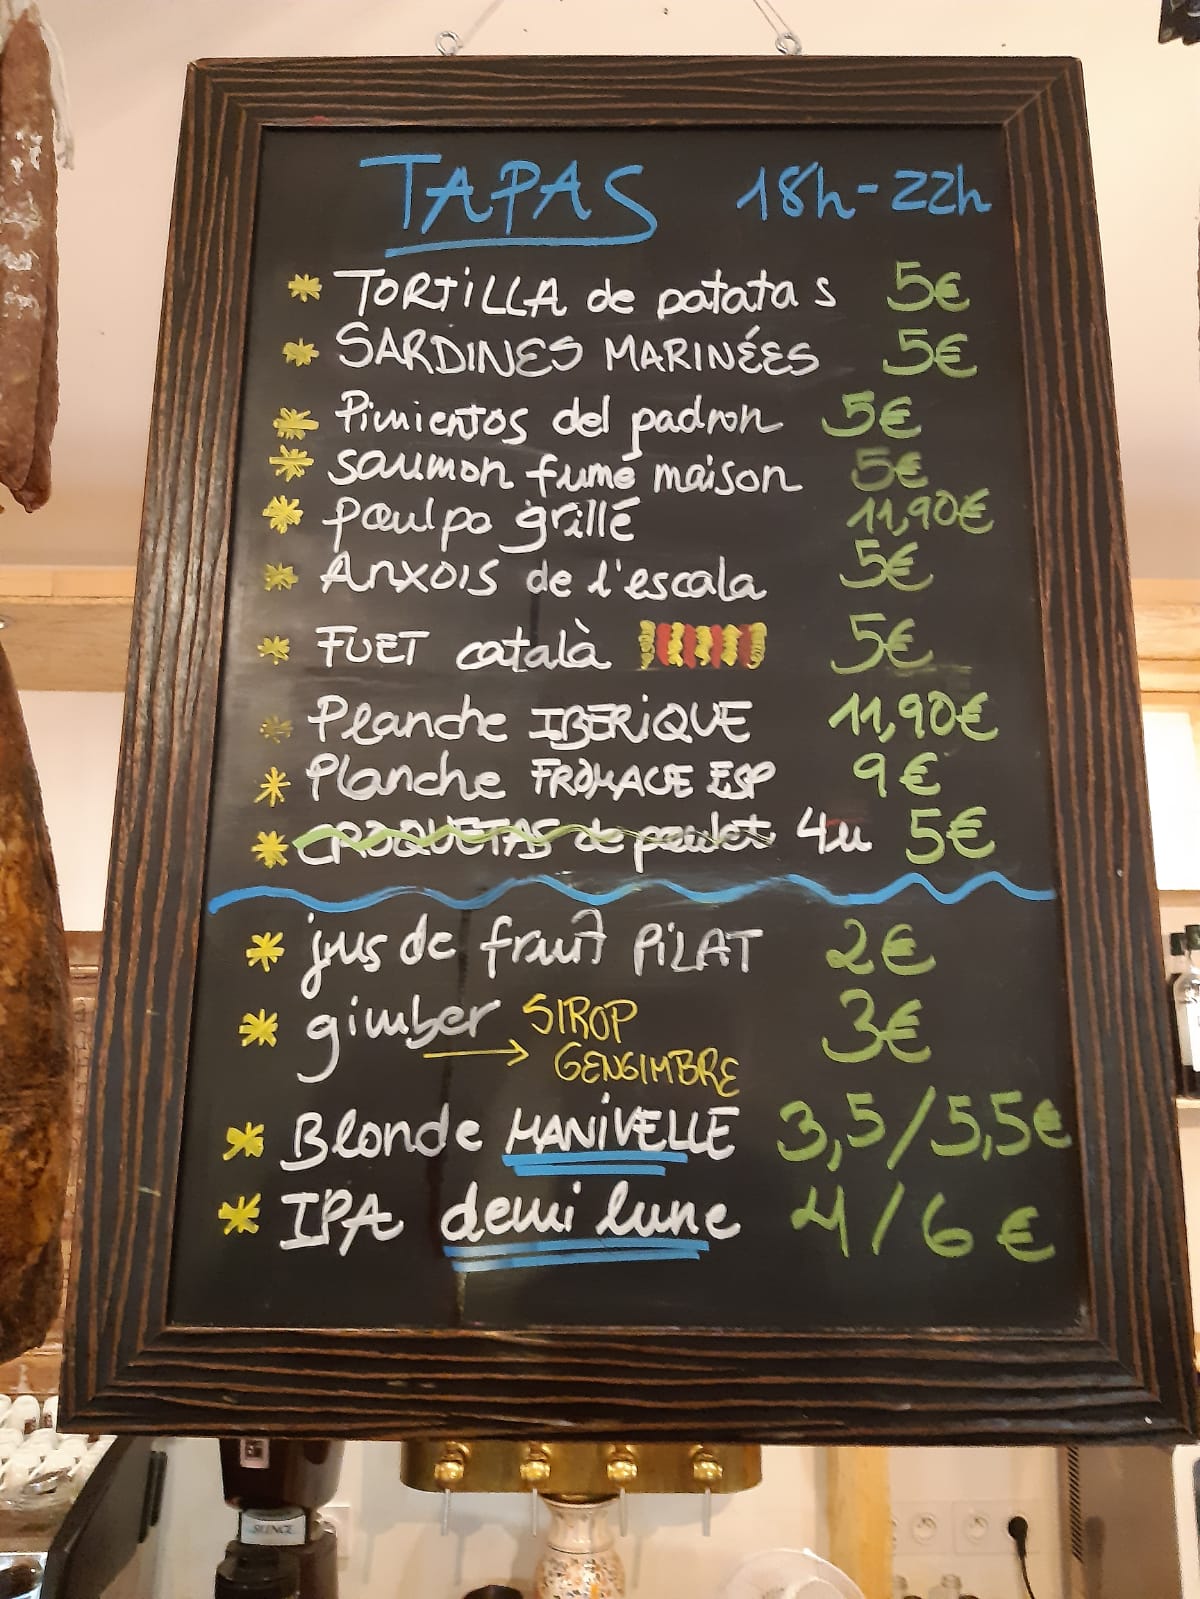 TAPAS 18h-22h
* TORTILLA de patatas 5€
* SARDINES MARINÉES 5€
* Pimientos del padron 5€
* saumon fumé maison 5€
* poulpo grillé 11,90€
* Anxois de l'escala 5€
* FUET català 5€
* Planche IBERIQUE 11,90€
* Planche FROMAGE ESP 9€
* CROQUETAS de poulet 4u 5€
* jus de fruit PILAT 2€
* gimber → SIROP 3€
GENGIMBRE
* Blonde MANIVELLE 3,5/5,5€
* IPA demi lune 4/6€